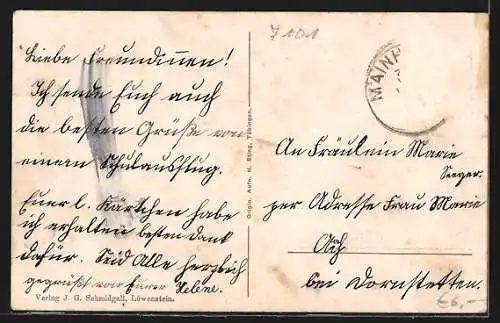 Liebe Freundinnen!
Ich sende Euch auch
die besten Grüße von
einem Schulausflug.
Euer l. Kärtchen habe
ich erhalten besten Dank
dafür. Seid Alle herzlich
gegrüßt von Eurer Helene.
Verlag J. G. Schmidgall, Löwenstein.
Origin. Aufn. H. Sting, Tübingen.
MAINH
An Fräulein Marie
Seeger.
per Adresse Frau Marie
Ach
bei Dornstetten.
€6,-